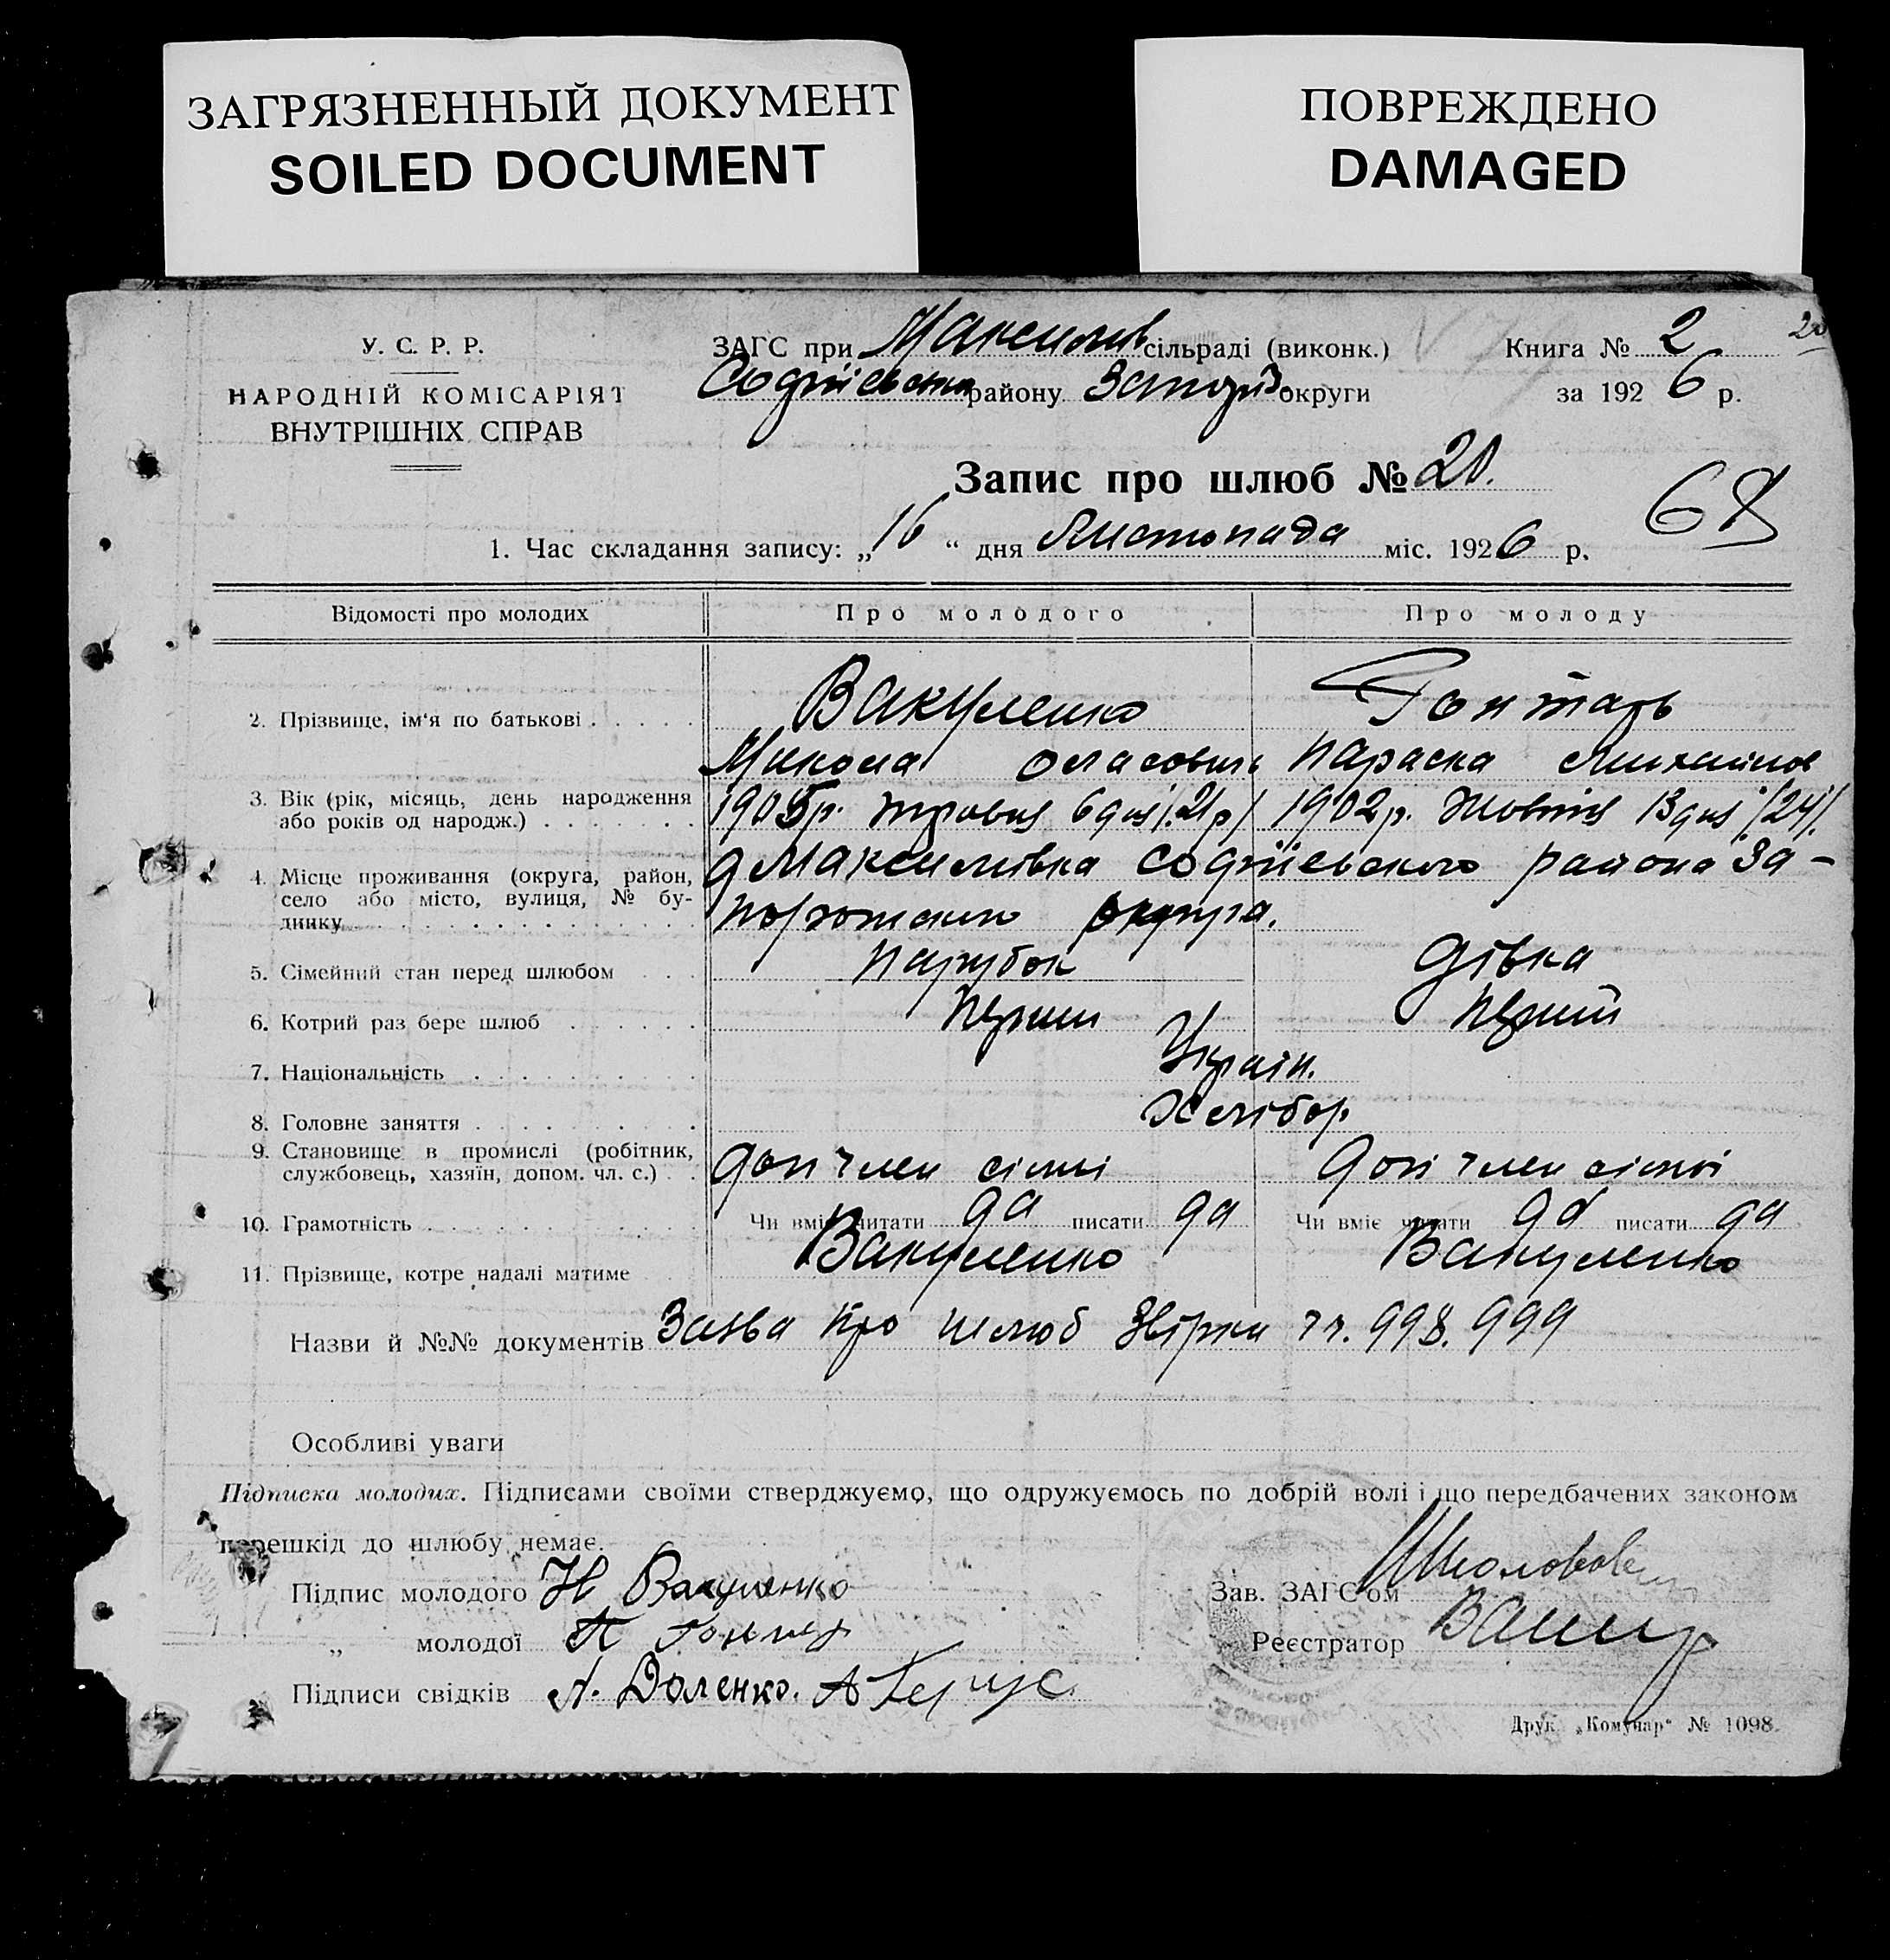 ЗАГРЯЗНЕННЫЙ ДОКУМЕНТ
SOILED DOCUMENT
ПОВРЕЖДЕНО
DAMAGED
У. С. Р. Р.
НАРОДНІЙ КОМІСАРІЯТ
ВНУТРІШНІХ СПРАВ
ЗАГС при Максимів сільраді (виконк.)
Софіївськ району Запоріз. округи
Книга № 2
20
за 1926 р.
Запис про шлюб № 20.
68
1. Час складання запису: „16“ дня Листопада міс. 1926 р.
Відомості про молодих Про молодого Про молоду
2. Прізвище, ім'я по батькові Вакуленко Гонтарь
Микола Оласович Параска Михайлов
3. Вік (рік, місяць, день народження 1905р. травня 6 дня /21р/ 1902р. Жовтня 13 дня /24/.
або років од народж.)
4. Місце проживання (округа, район, д Максимівка Софіієвского района За-
село або місто, вулиця, № бу-
динку порожского округа.
5. Сімейний стан перед шлюбом парубок дівка
6. Котрий раз бере шлюб перший перший
7. Національність Україн.
8. Головне заняття Хлібор.
9. Становище в промислі (робітник,
службовець, хазяїн, допом. чл. с.) доп член сімї доп член сімї
10. Грамотність Чи вміє читати да писати да Чи вміє читати да писати да
11. Прізвище, котре надалі матиме Вакуленко Вакуленко
Назви й №№ документів Заява про шлюб Звірки чч. 998. 999
Особливі уваги
Підписка молодих. Підписами своїми стверджуємо, що одружуємось по добрій волі і що передбачених законом
перешкід до шлюбу немає.
Підпис молодого Н Вакуленко
Зав. ЗАГС'ом
„ молодої П Гонтар
Реєстратор
Підписи свідків А. Доленко.
Друк. „Комунар“ № 1098.